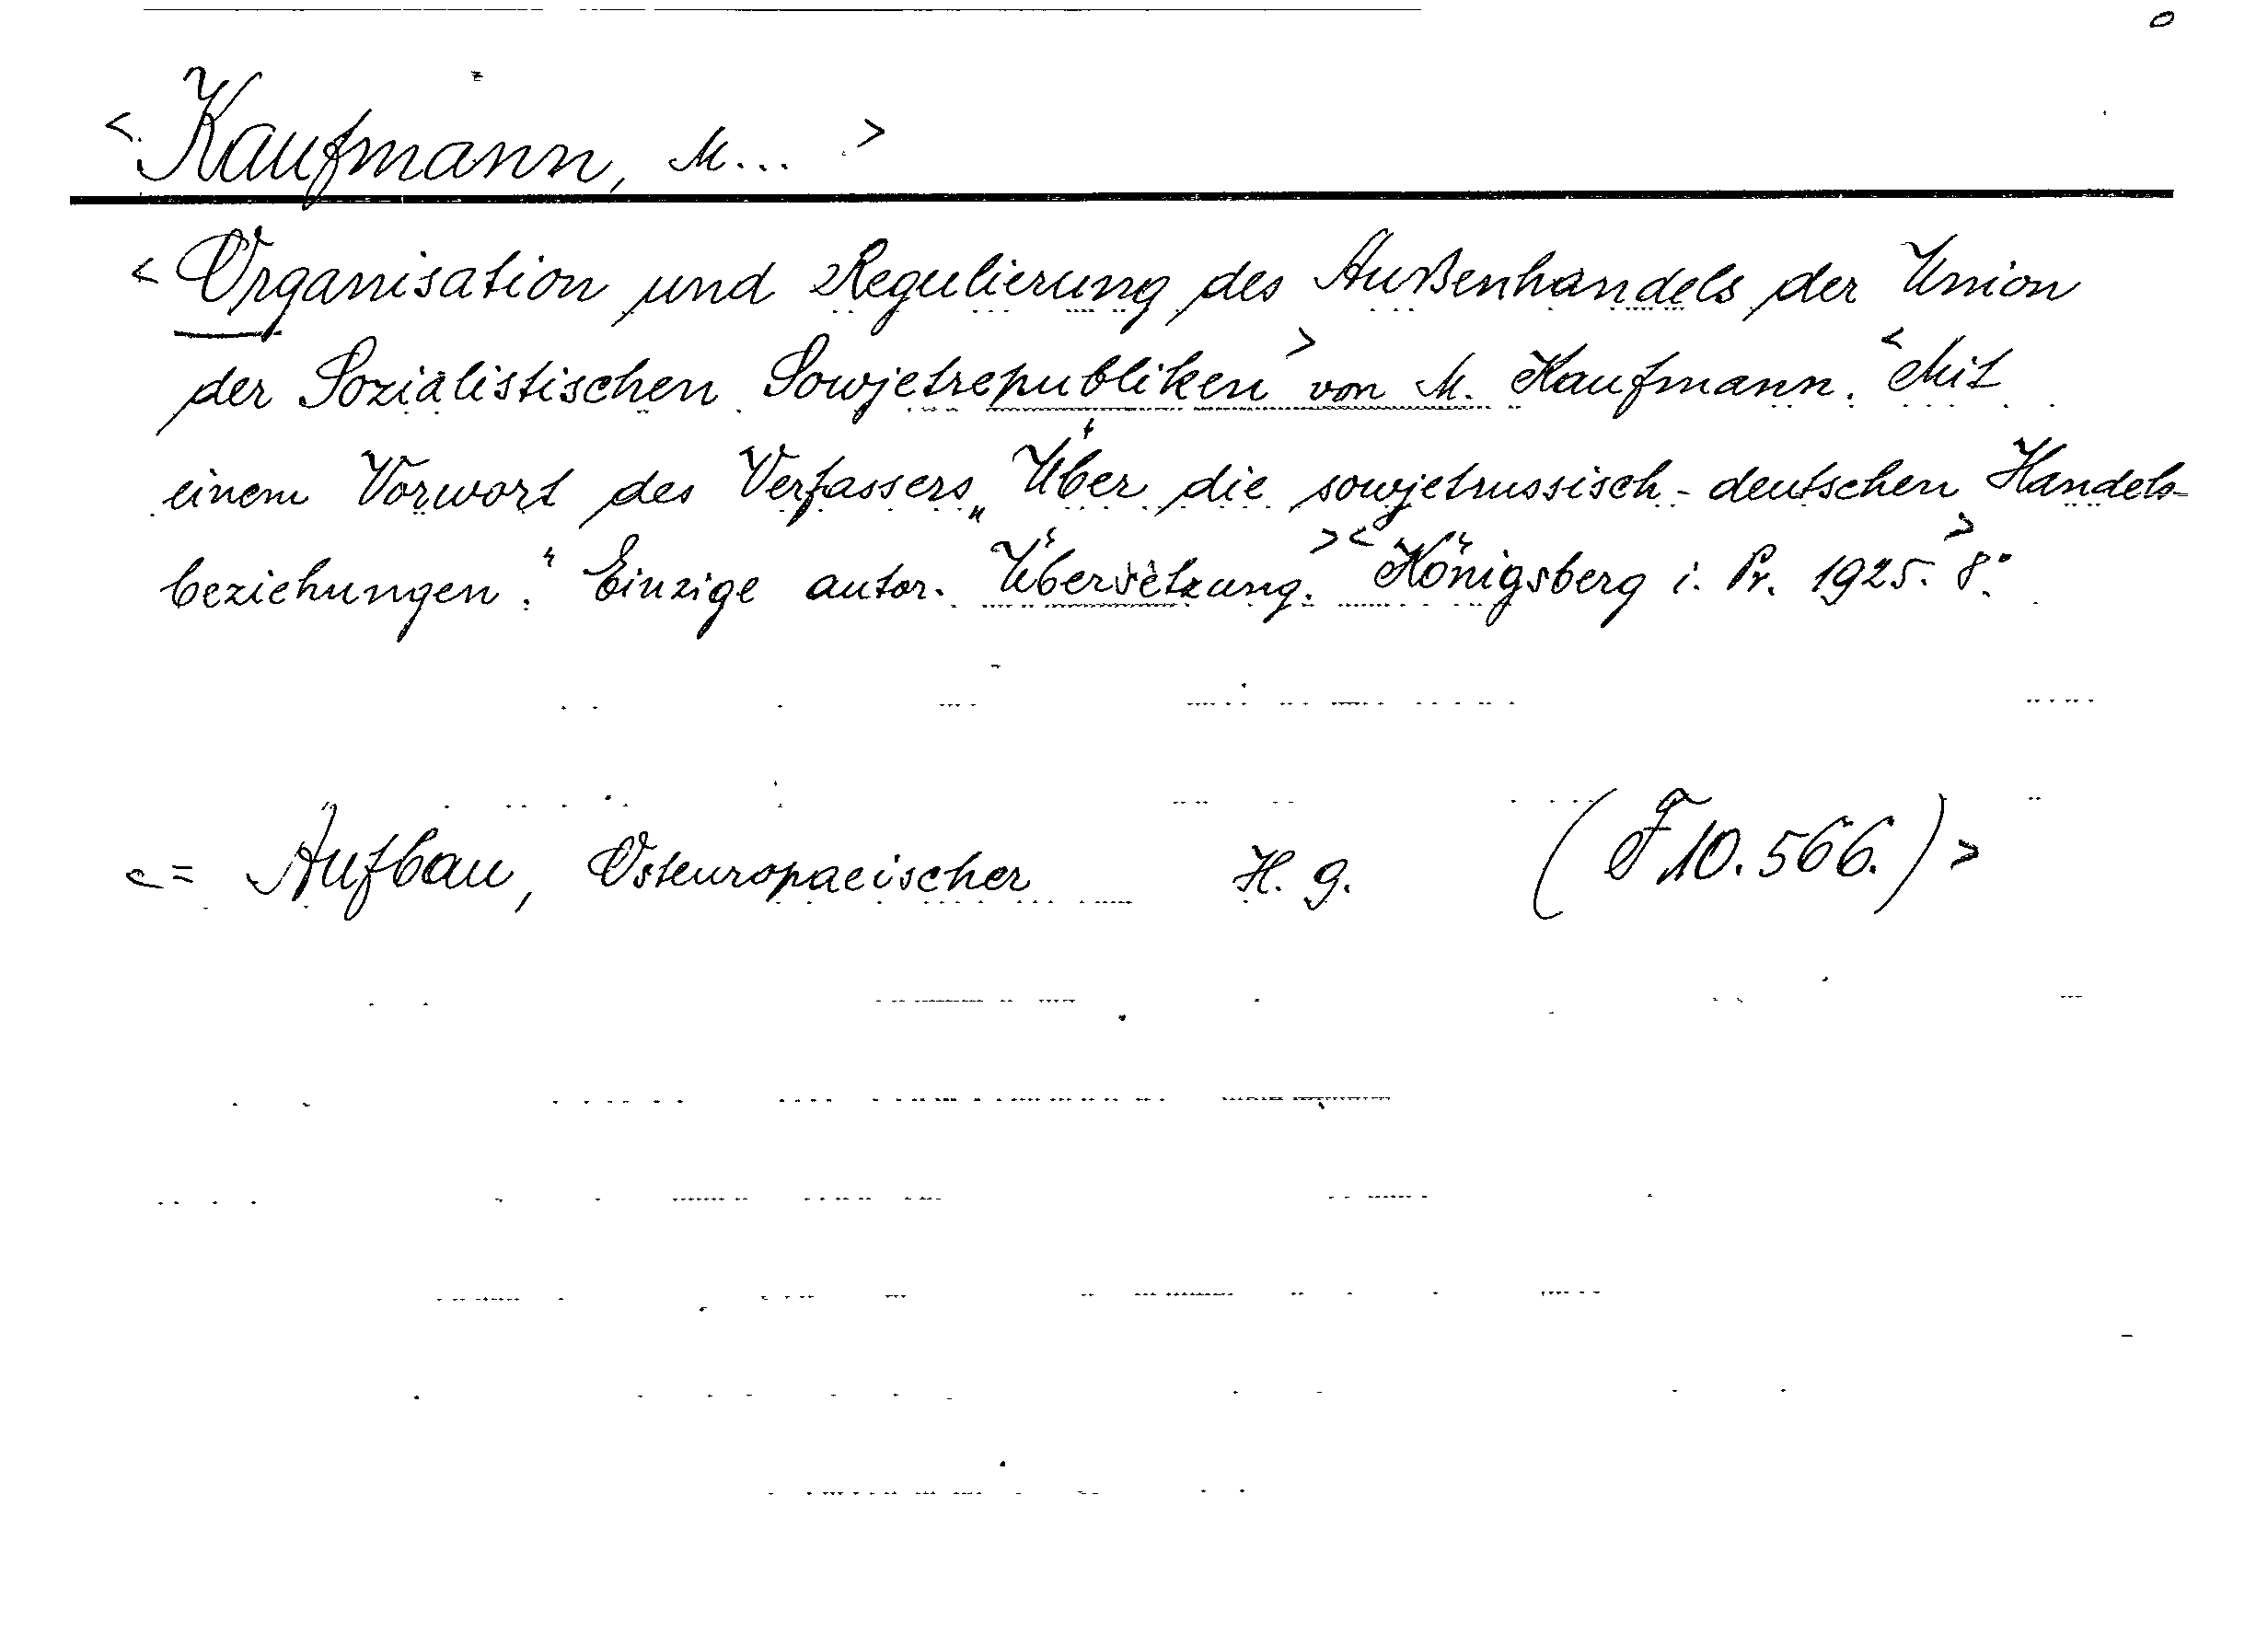 <Kaufmann, M... >
<Organisation und Regulierung des Außenhandels der Union
der Sozialistischen Sowjetrepubliken> von M. Kaufmann. <Mit
einem Vorwort des Verfassers „Über die sowjetrussisch-deutschen Handels-
beziehungen.“ Einzige autor. Übersetzung.> <Königsberg i. Pr. 1925.> 8.°
<= Aufbau, Osteuropaeischer H. 9. (F 10.566.)>